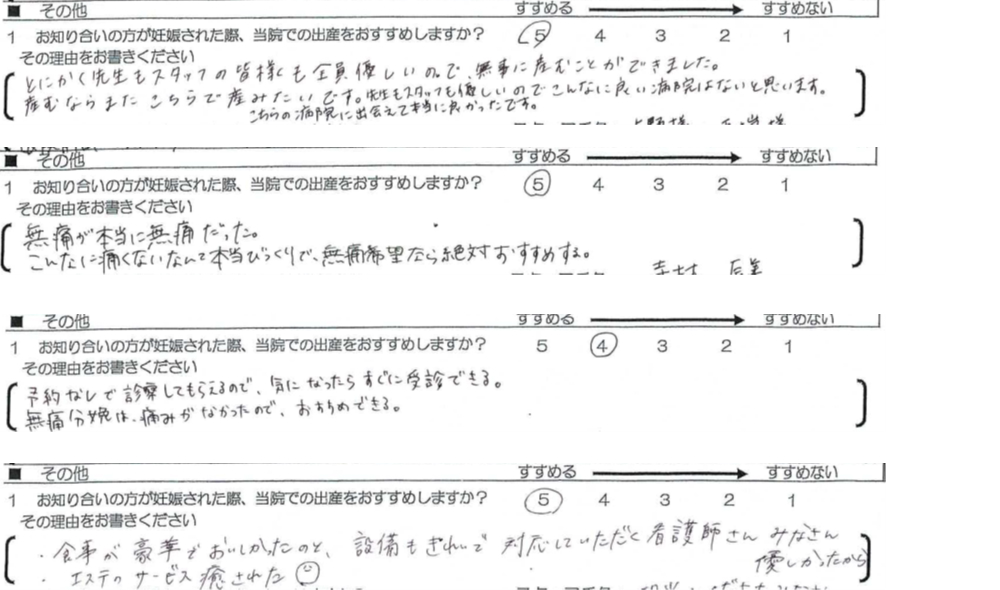 ■ その他 すすめる すすめない
1 お知り合いの方が妊娠された際、当院での出産をおすすめしますか? 5 4 3 2 1
その理由をお書きください
とにかく先生もスタッフの皆様も全員優しいので、無事に産むことができました。
産むならまたこちらで産みたいです。先生もスタッフも優しいのでこんなに良い病院はないと思います。
こちらの病院に出会えて本当に良かったです。
■ その他 すすめる すすめない
1 お知り合いの方が妊娠された際、当院での出産をおすすめしますか? 5 4 3 2 1
その理由をお書きください
無痛が本当に無痛だった。
こんなに痛くないなんて本当びっくりで、無痛希望なら絶対おすすめする。
■ その他 すすめる すすめない
1 お知り合いの方が妊娠された際、当院での出産をおすすめしますか? 5 4 3 2 1
その理由をお書きください
予約なしで診察してもらえるので、気になったらすぐに受診できる。
無痛分娩は、痛みがなかったので、おすすめできる。
■ その他 すすめる すすめない
1 お知り合いの方が妊娠された際、当院での出産をおすすめしますか? 5 4 3 2 1
その理由をお書きください
・食事が豪華でおいしかったのと、設備もきれいで対応していただく看護師さんみなさん
優しかったから
・エステのサービス癒された